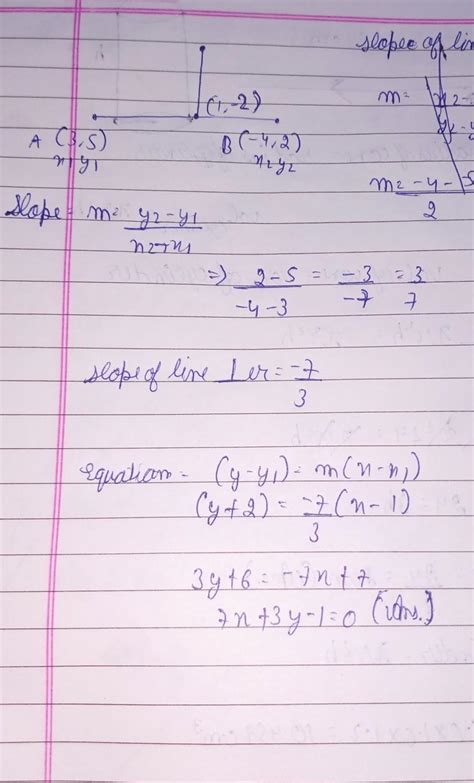 slope of lin
(1,-2)
m=
A (3,5)
x1 y1
B (-4,2)
x2 y2
m= -4-5
2
Slope = m= y2-y1
x2-x1
=> 2-5 = -3 = 3
-4-3 -7 7
slope of line ⊥er = -7
3
equation = (y-y1) = m(x-x1)
(y+2) = -7 (x-1)
3
3y+6 = -7x+7
7x+3y-1=0 (Ans.)